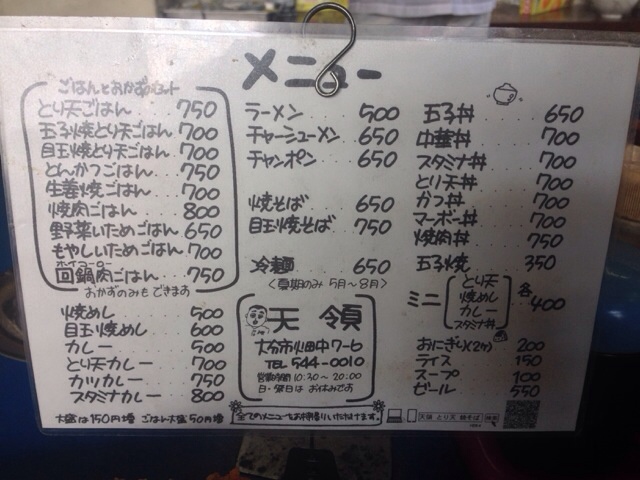 メニュー
ごはんとおかずのセット
とり天ごはん 750
玉子焼とり天ごはん 700
目玉焼とり天ごはん 700
とんかつごはん 750
生姜焼ごはん 700
焼肉ごはん 800
野菜いためごはん 650
もやしいためごはん 700
ホイコーロー
回鍋肉ごはん 750
おかずのみもできます
焼めし 500
目玉焼めし 600
カレー 500
とり天カレー 700
カツカレー 750
スタミナカレー 800
大盛は150円増 ごはん大盛50円増
ラーメン 500
チャーシューメン 650
チャンポン 650
焼そば 650
目玉焼そば 750
冷麺 650
〈夏期のみ 5月〜8月〉
天領
大分市畑中7-6
TEL 544-0010
営業時間 10:30〜20:00
日・祭日は お休みです
全てのメニューをお持帰りいただけます。
玉子丼 650
中華丼 700
スタミナ丼 700
とり天丼 700
カツ丼 700
マーボー丼 700
焼肉丼 750
玉子焼 350
ミニ とり天 焼めし カレー スタミナ丼 各400
おにぎり(2ケ) 200
ライス 150
スープ 100
ビール 550
天領 とり天 焼そば 検索